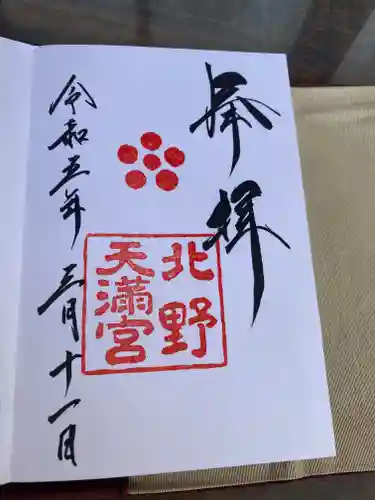 奉拝
北野
天満宮
令和五年三月十一日